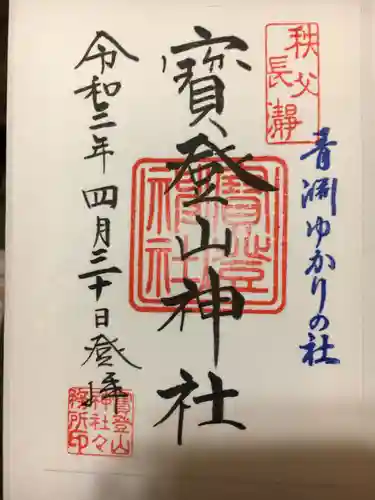 秩父
長瀞
青渊ゆかりの社
寳登山神社
寳登
山神
社
令和二年四月三十日登拝
寳登山
神社々
務所印